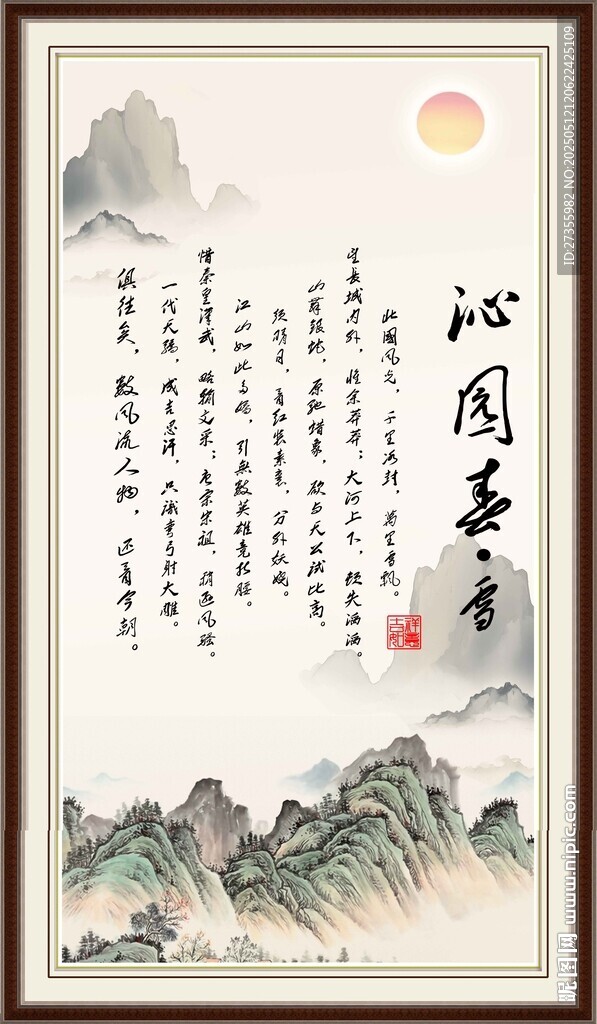 沁园春·雪
北國风光，千里冰封，萬里雪飘。
望長城内外，惟余莽莽；大河上下，顿失滔滔。
山舞银蛇，原驰蜡象，欲与天公试比高。
须晴日，看红装素裹，分外妖娆。
江山如此多娇，引無數英雄竞折腰。
惜秦皇漢武，略输文采；唐宗宋祖，稍逊风骚。
一代天骄，成吉思汗，只識弯弓射大雕。
俱往矣，數风流人物，还看今朝。
吉祥如意
ID:27355982 NO:20250512120622425109
昵图网 www.nipic.com